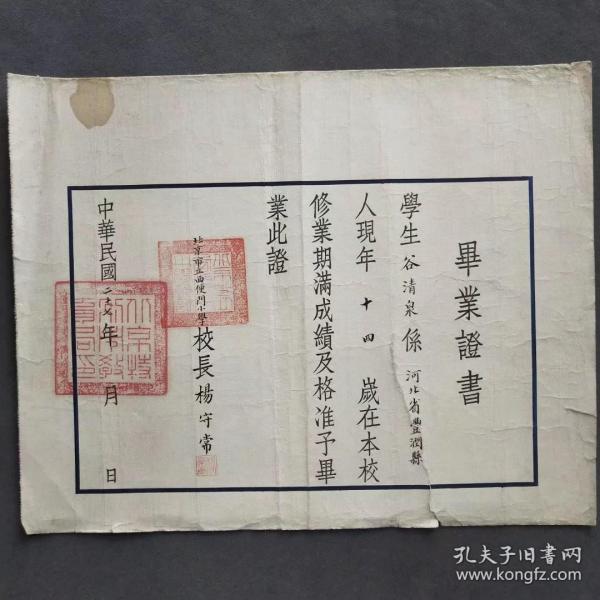 畢業證書
學生谷清泉係河北省豐潤縣
人現年十四歲在本校
修業期滿成績及格准予畢
業此證
北京市立西便門小學校長楊守常
中華民國二十七年 月 日
孔夫子旧书网
www.kongfz.com